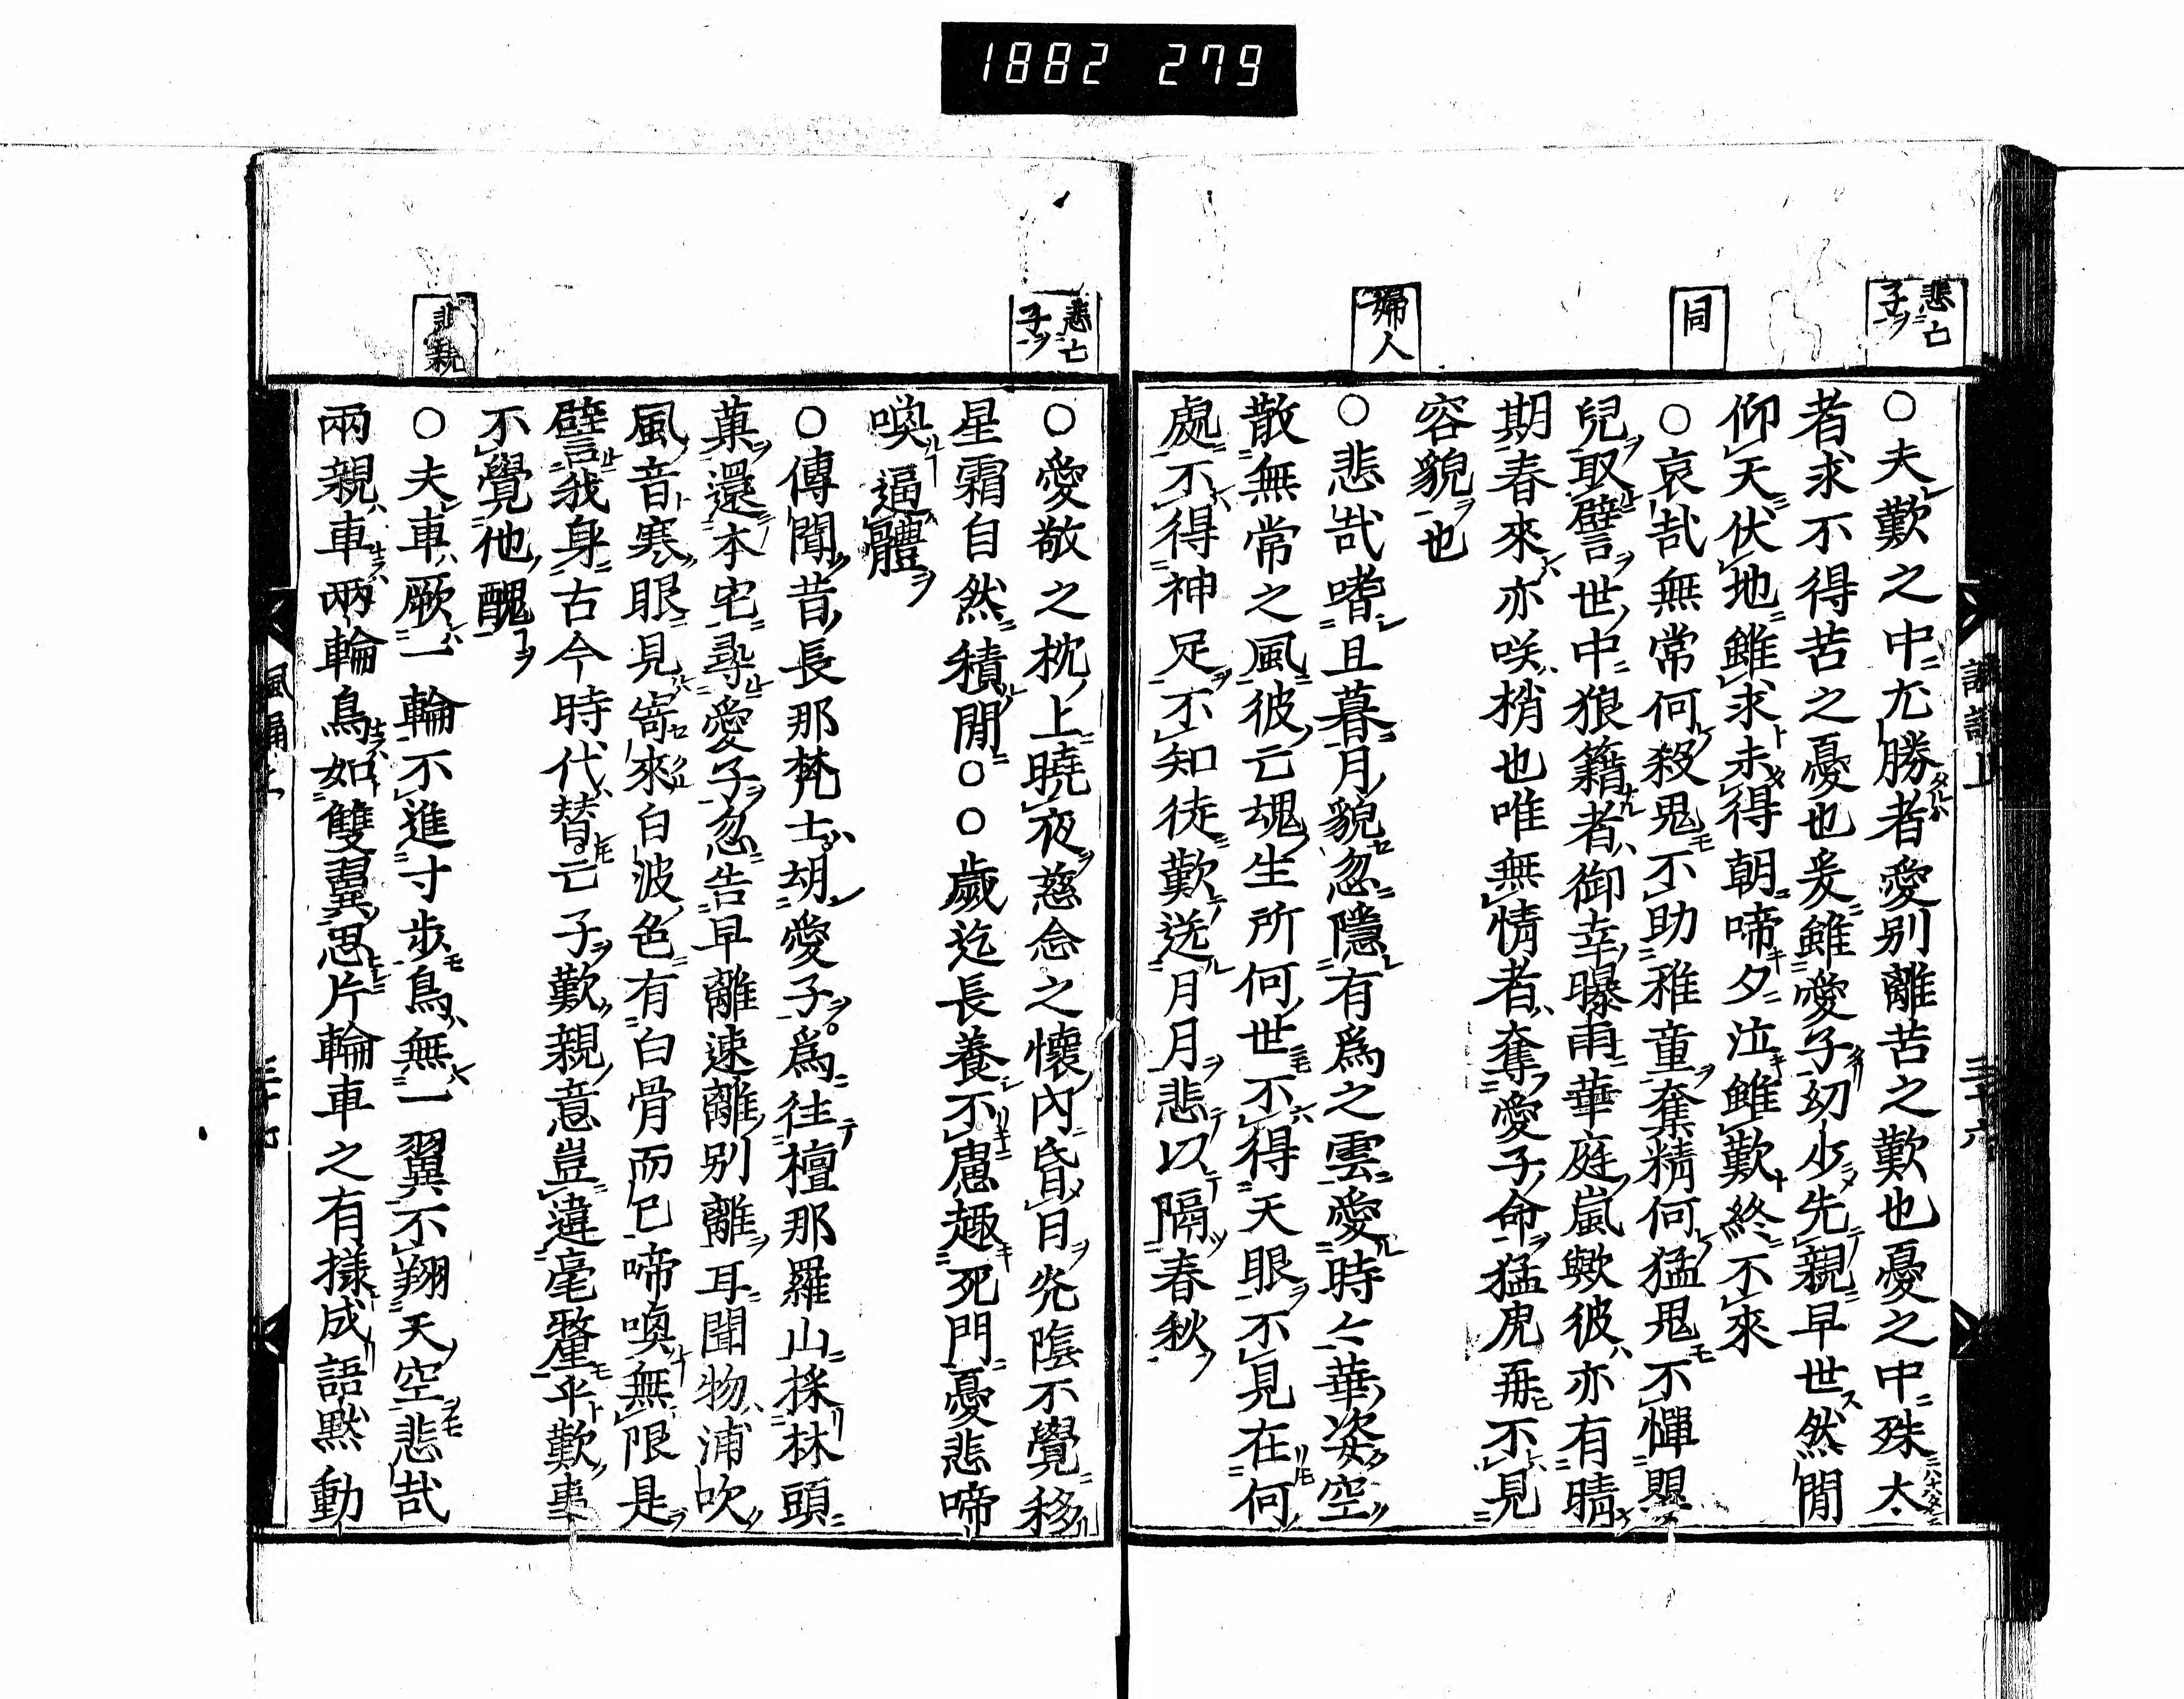 1882 279
悲亡
子ヲ
同
婦人
○夫歎之中尤勝者愛別離苦之歎也憂之中殊太
者求不得苦之憂也爰雖愛子幼少先親早世然間
仰天伏地雖求未得朝啼夕泣雖歎終不來
○哀哉無常何殺鬼不助雅童奪精何猛鬼不憚
兒取譬世中狼籍者御幸曝雨華庭嵐歟彼亦有晴
期春來亦咲梢也唯無情者奪愛子命猛虎再不見
容貌也
○悲哉嗜且暮月貌忽隱有爲之雲愛時々華姿空
散無常之風彼亡魂生所何世不得天眼不見在何
處不得神足不知徒歎送月月悲以隔春秋
三十六
悲亡
子ヲ
悲親
○愛敬之枕上曉夜慈念之懷內昏日光陰不覺移
星霜自然積閒○○歲迄長養不慮趣死門憂悲啼
喚逼體
○傳聞昔長那梵士胡愛子爲往檀那羅山採林頭
菓還本宅尋愛子忽告早離速離別離耳聞物浦吹
風音寒眼見寄來白波色有白骨而已啼喚無限是
譬我身古今時代替亡子歎親意豈違毫釐乎歎事
不覺他醜
○夫車厥一輪不進寸步鳥無一翼不翔天空悲哉
兩親車兩輪鳥如雙翼思片輪車之有樣成語默動